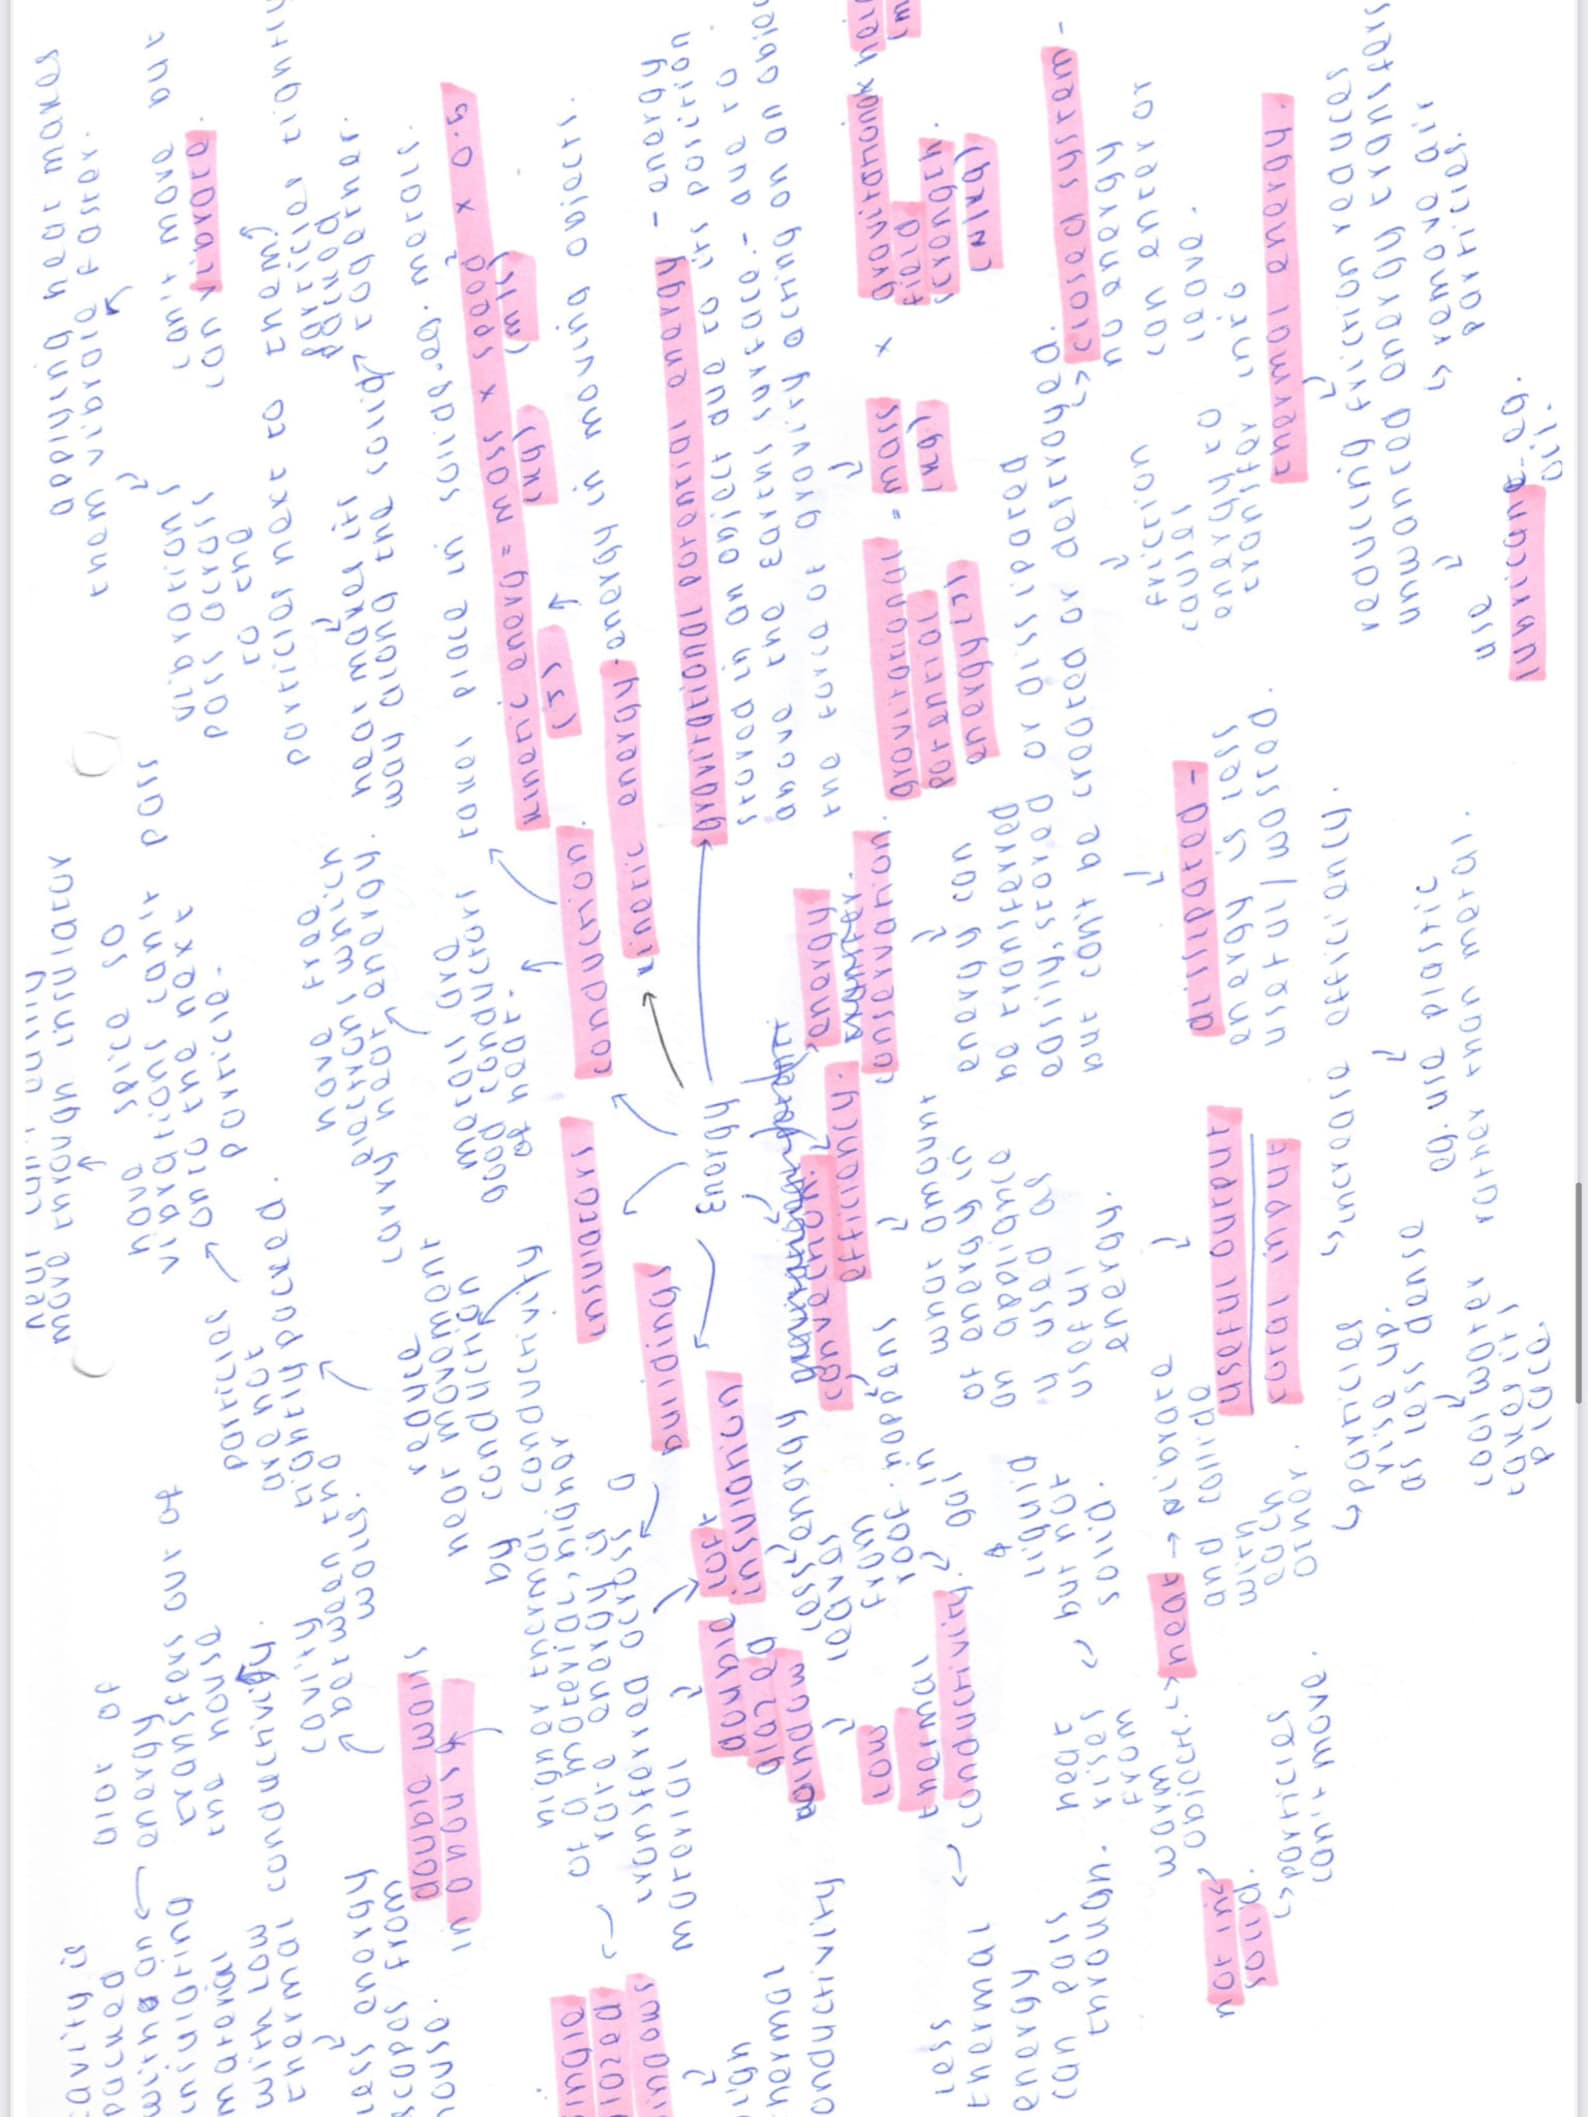 cavity is
packed
with an
insulating
material
with low
thermal conductivity.
less energy
escapes from
house.
alot of
energy
transfers out of
the house
double walls
in a house
cavity
between the
walls.
particles
are not
tightly packed.
move through insulator
have space so
vibrations can't pass
onto the next
particle.
reduce
heat movement
by conduction
conductivity
higher thermal
of a material, higher
rate energy is
transferred across a
material
insulators
buildings
single
glazed
windows
high
thermal
conductivity
less
thermal
energy
can pass
through.
loft
insulation
less energy
leaves
from
roof.
double
glazed
window
low
thermal
conductivity.
metals are
good conductors
of heat.
have free
electrons which
carry heat energy.
conduction.
takes place in solids-eg. metals.
heat makes its
way along the solid
particles
packed
together.
vibrations
pass across
to the
particles next to them
applying heat makes
them vibrate faster.
can't move but
can vibrate.
kinetic energy = mass x speed² x 0.5
(J)
(kg)
(m/s)
kinetic energy - energy in moving objects.
Energy
gravitational potential energy - energy
stored in an object due to its position
above the earths surface - due to
the force of gravity acting on an object
gravitational
potential
energy (J)
= mass
(kg)
x
gravitational
field
strength.
(N/kg)
convection.
happens
in
gas
&
liquid
but not
solid.
heat
rises
from
warm
objects.
heat → vibrate
and collide
with
each
other.
particles
rise up.
as less dense
cool water
takes its
place.
not in
solid.
particles
can't move.
efficiency.
what amount
of energy in
an appliance
is used as
useful
energy.
useful output
total input
increase efficiency.
eg. use plastic
rather than metal.
energy
conservation.
energy can
be transferred
easily, stored or dissipated
but can't be created or destroyed.
closed system -
no energy
can enter or
leave.
dissipated -
energy is less
useful / wasted.
friction
causes
energy to
transfer into
thermal energy.
reducing friction reduces
unwanted energy transfers
use
lubricant - eg.
oil.
remove air
particles.